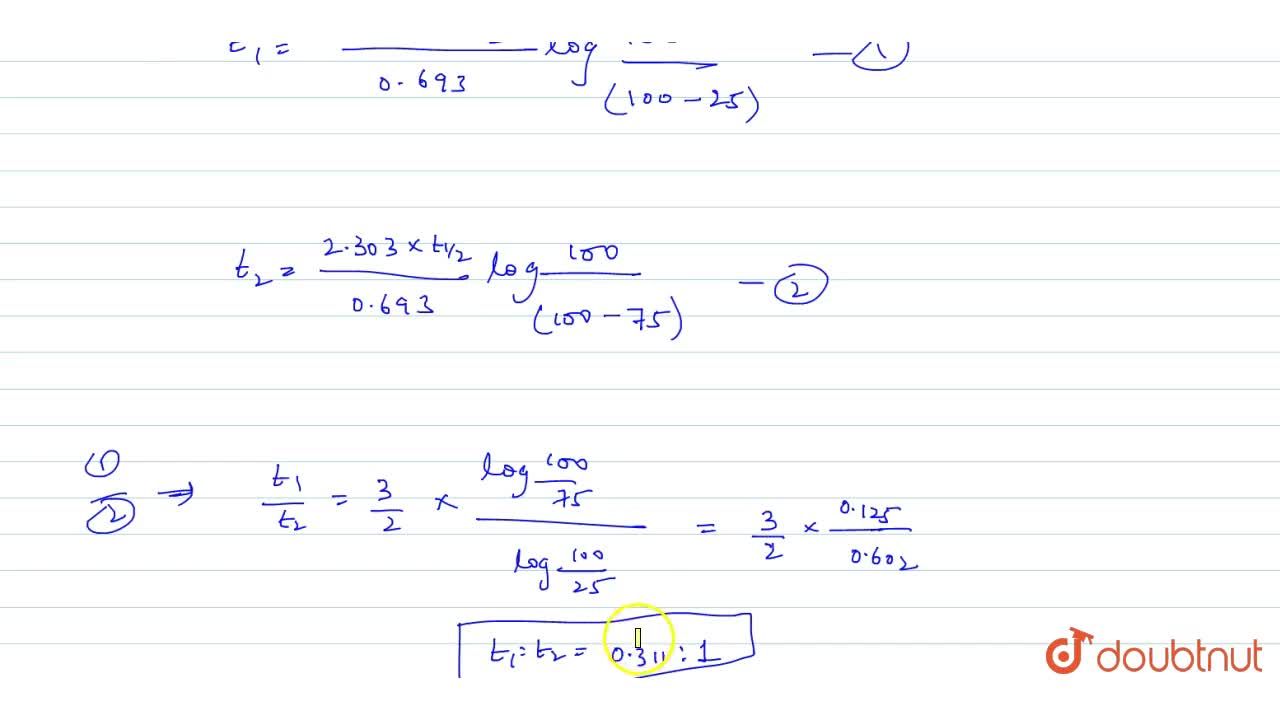 t₁ =
log
— ①
0.693
(100 – 25)
t₂ = 2.303 × t1/2 / 0.693 log 100 / (100 – 75) – ②
① / ② ⇒ t₁ / t₂ = 3 / 2 × log 100/75 / log 100/25 = 3/2 × 0.125 / 0.602
t₁ : t₂ = 0.311 : 1
doubtnut